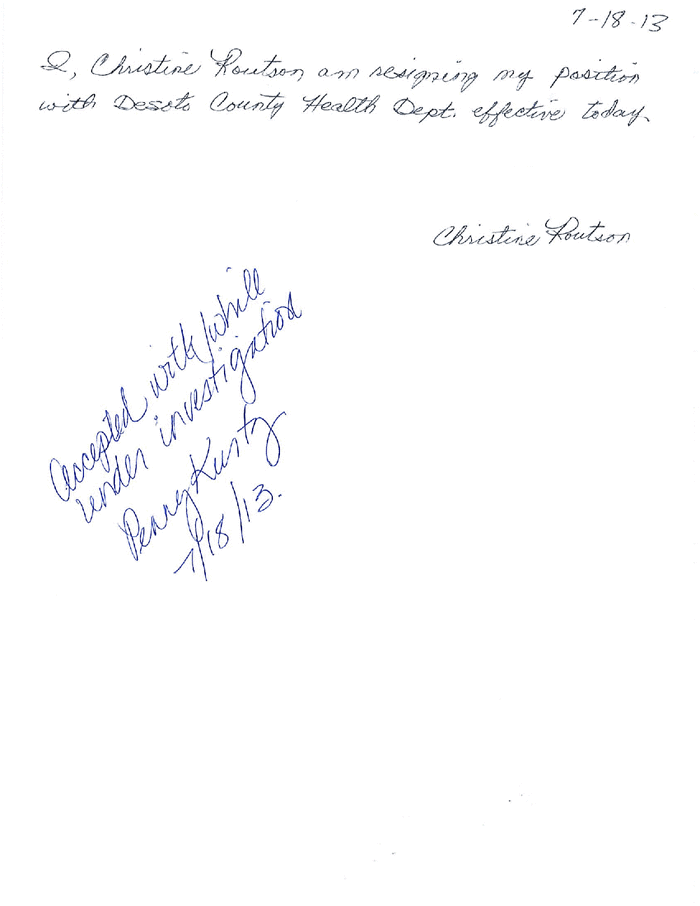 7-18-13
I, Christine Routson am resigning my position
with Desoto County Health Dept. effective today.
Christine Routson
Accepted with/while
under investigation
Penny Kurtz
7/18/13.